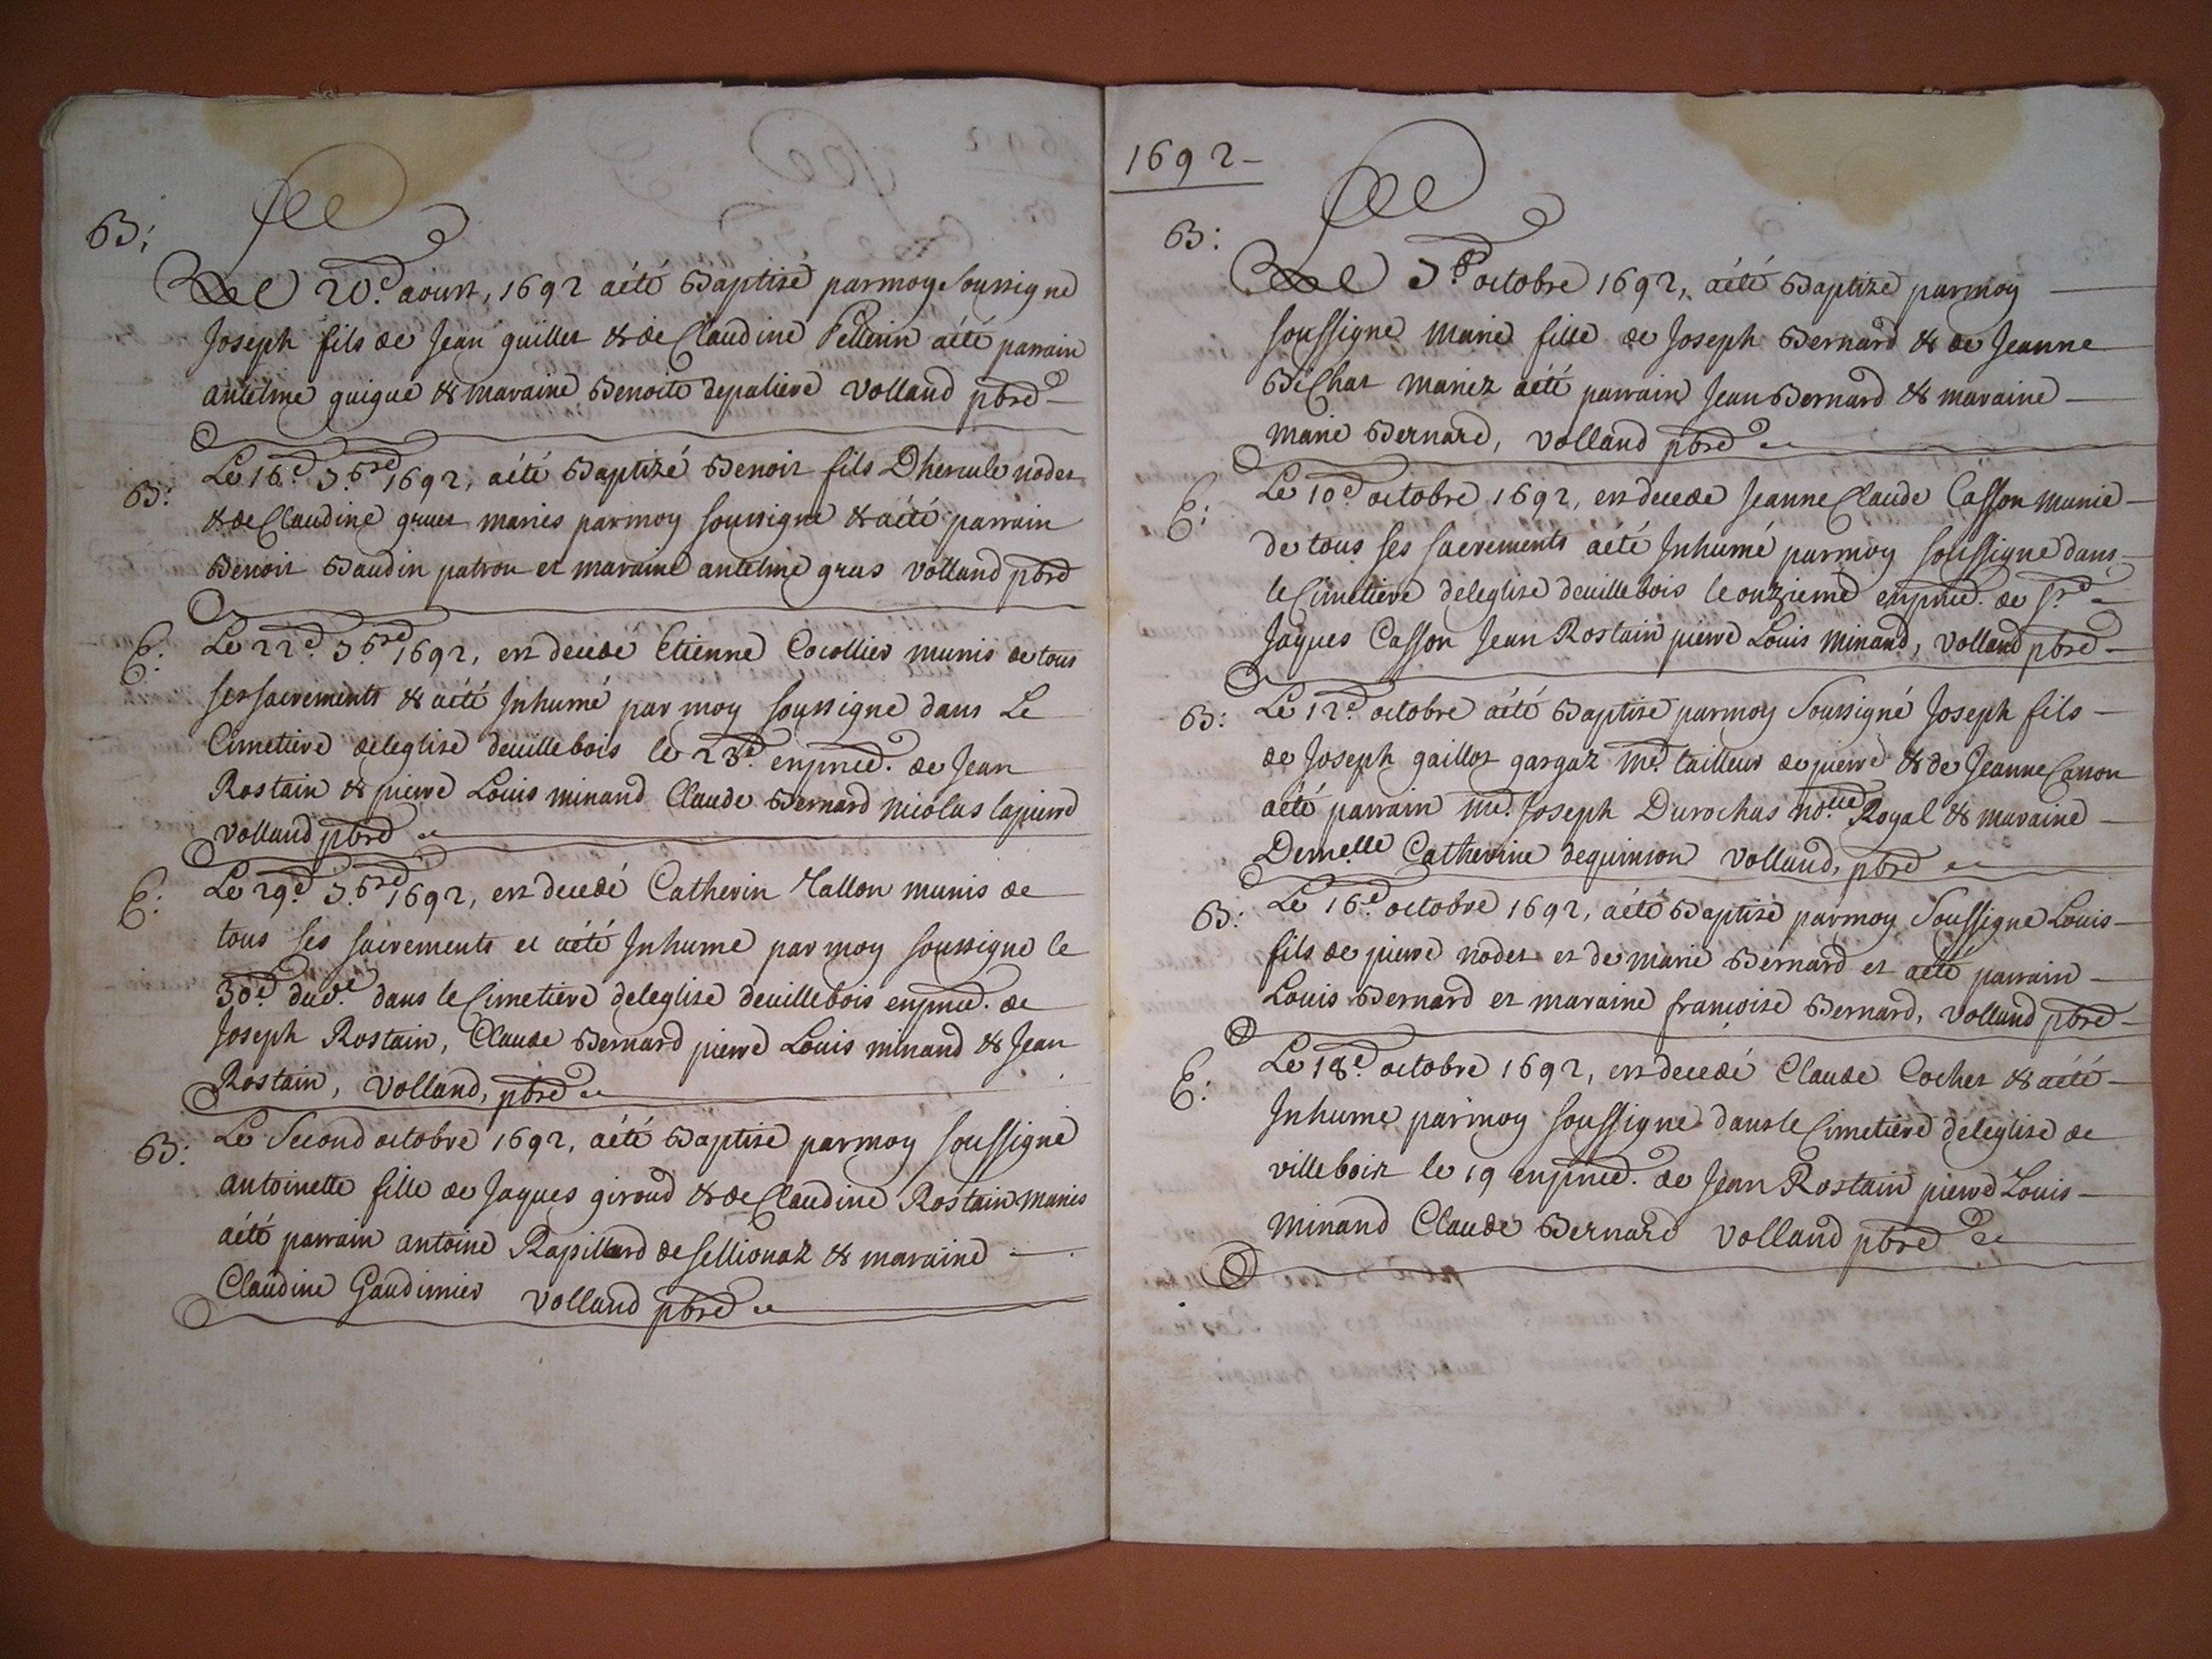 B:
Le 20.e aoust, 1692 aété Baptisé parmoy soussigné
Joseph fils de Jean guillet & de Claudine Pellerin aété parrain
antelme guigue & maraine Benoite depaliere Volland pbre
B:
Le 16.e 7.bre 1692, aété Baptizé Benoit fils Dhercule nodet
& de Claudine gruet mariés parmoy soussigné & aété parrain
Benoit Baudin patron et maraine antelme grus Volland pbre
E:
Le 22.e 7.bre 1692, est decede Etienne Cocollier munis de tous
ses sacrements & aété Inhumé par moy soussigne dans Le
Cimetiere deleglise deuillebois le 23.e enpnce. de Jean
Rostain & pierre Louis minand Claude Bernard nicolas lapierre
Volland pbre
E:
Le 29.e 7.bre 1692, est decedé Catherin Tallon munis de
tous ses sacrements et aété Inhume par moy soussigne le
30.e dud.t dans le Cimetiere deleglise deuillebois enpnce. de
Joseph Rostain, Claude Bernard pierre Louis minand & Jean
Rostain, Volland, pbre
B:
Le Second octobre 1692, aété Baptise parmoy soussigne
antoinette fille de Jaques giroud & de Claudine Rostain mariés
aété parrain antoine Rapillard de sellionaz & maraine
Claudine Gaudimier Volland pbre
1692
B:
Le octobre 1692, aété Baptizé parmoy
soussigne marie fille de Joseph Bernard & de Jeanne
Béchat mariez aété parrain Jean Bernard & maraine
marie Bernard, Volland pbre
E:
Le 10.e octobre 1692, est decede Jeanne Claude Casson munie
de tous ses sacrements aété Inhumé parmoy soussigne dans
le Cimetiere deleglise deuillebois le onzieme enpnce. de
Jaques Casson Jean Rostain pierre Louis minand, Volland pbre
B:
Le 12.e octobre aété Baptisé parmoy Soussigné Joseph fils
de Joseph gaillot gargaz me. tailleur de pierre & de Jeanne Casson
aété parrain me. Joseph Durochas no.re Royal & maraine
Dem.elle Catherine dequinson Volland, pbre
B:
Le 16.e octobre 1692, aété Baptisé parmoy Soussigne Louis
fils de pierre nodet et de marie Bernard et aété parrain
Louis Bernard et maraine françoise Bernard, Volland pbre
E:
Le 18.e octobre 1692, est decedé Claude Cochet & aété
Inhume parmoy soussigne dans le Cimetiere deleglise de
villebois le 19 enpnce. de Jean Rostain pierre Louis
minand Claude Bernard Volland pbre